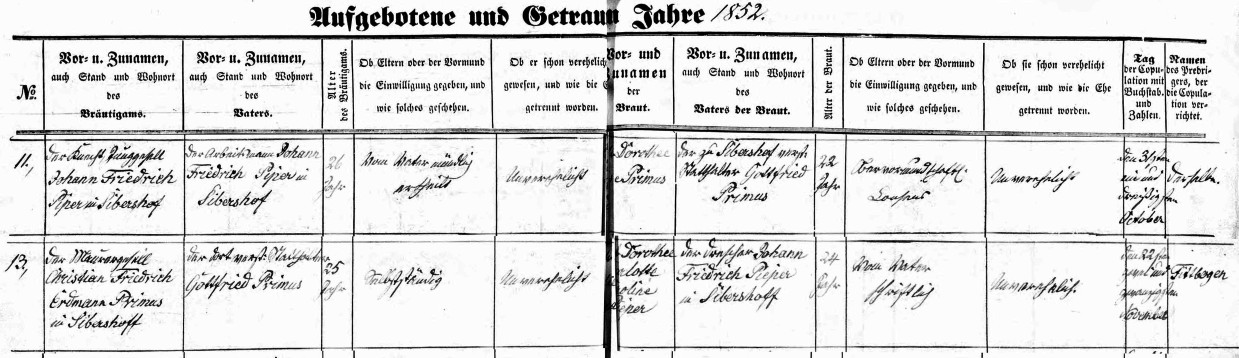 Aufgebotene und Getrau Jahre 1852.
№.
Vor- u. Zunamen,
auch Stand und Wohnort
des
Bräutigams.
Vor- u. Zunamen,
auch Stand und Wohnort
des
Vaters.
Alter
des Bräutigams.
Ob Eltern oder der Vormund
die Einwilligung gegeben, und
wie solches geschehen.
Ob er schon verehelich
gewesen, und wie die E
getrennt worden.
Vor- und
Zunamen
der
Braut.
Vor- u. Zunamen,
auch Stand und Wohnort
des
Vaters der Braut.
Alter der Braut.
Ob Eltern oder der Vormund
die Einwilligung gegeben, und
wie solches geschehen.
Ob sie schon verehelicht
gewesen, und wie die Ehe
getrennt worden.
Tag
der Copu-
lation mit
Buchstab.
und
Zahlen.
Namen
des Predi-
gers, der
die Copula-
tion ver-
richtet.
11,
Johann Friedrich
Piper in Sibershof
der Arbeitsmann Johann
Friedrich Piper in
Sibershof
26
Jahr
Vom Vater mündlig
ertheilt
Unverehelicht
Dorothee
Primus
der zu Sibershof verst.
Statthalter Gottfried
Primus
22
Jahr
Obervormundschaftl.
Consens
Unverehelicht
den 31sten
ein und
dreißigsten
October
Derselbe.
13,
der Maurergesell
Christian Friedrich
Erdmann Primus
in Sibershoff
der dort verst. Statthalter
Gottfried Primus
25
Jahr
Selbstständig
Unverehelicht
Dorothee
lotte
oline
der Drescher Johann
Friedrich Pieper
in Sibershoff
24
Jahr
Vom Vater
schriftlig
Unverehelich
den 22sten
zwei und
zwanzigsten
November